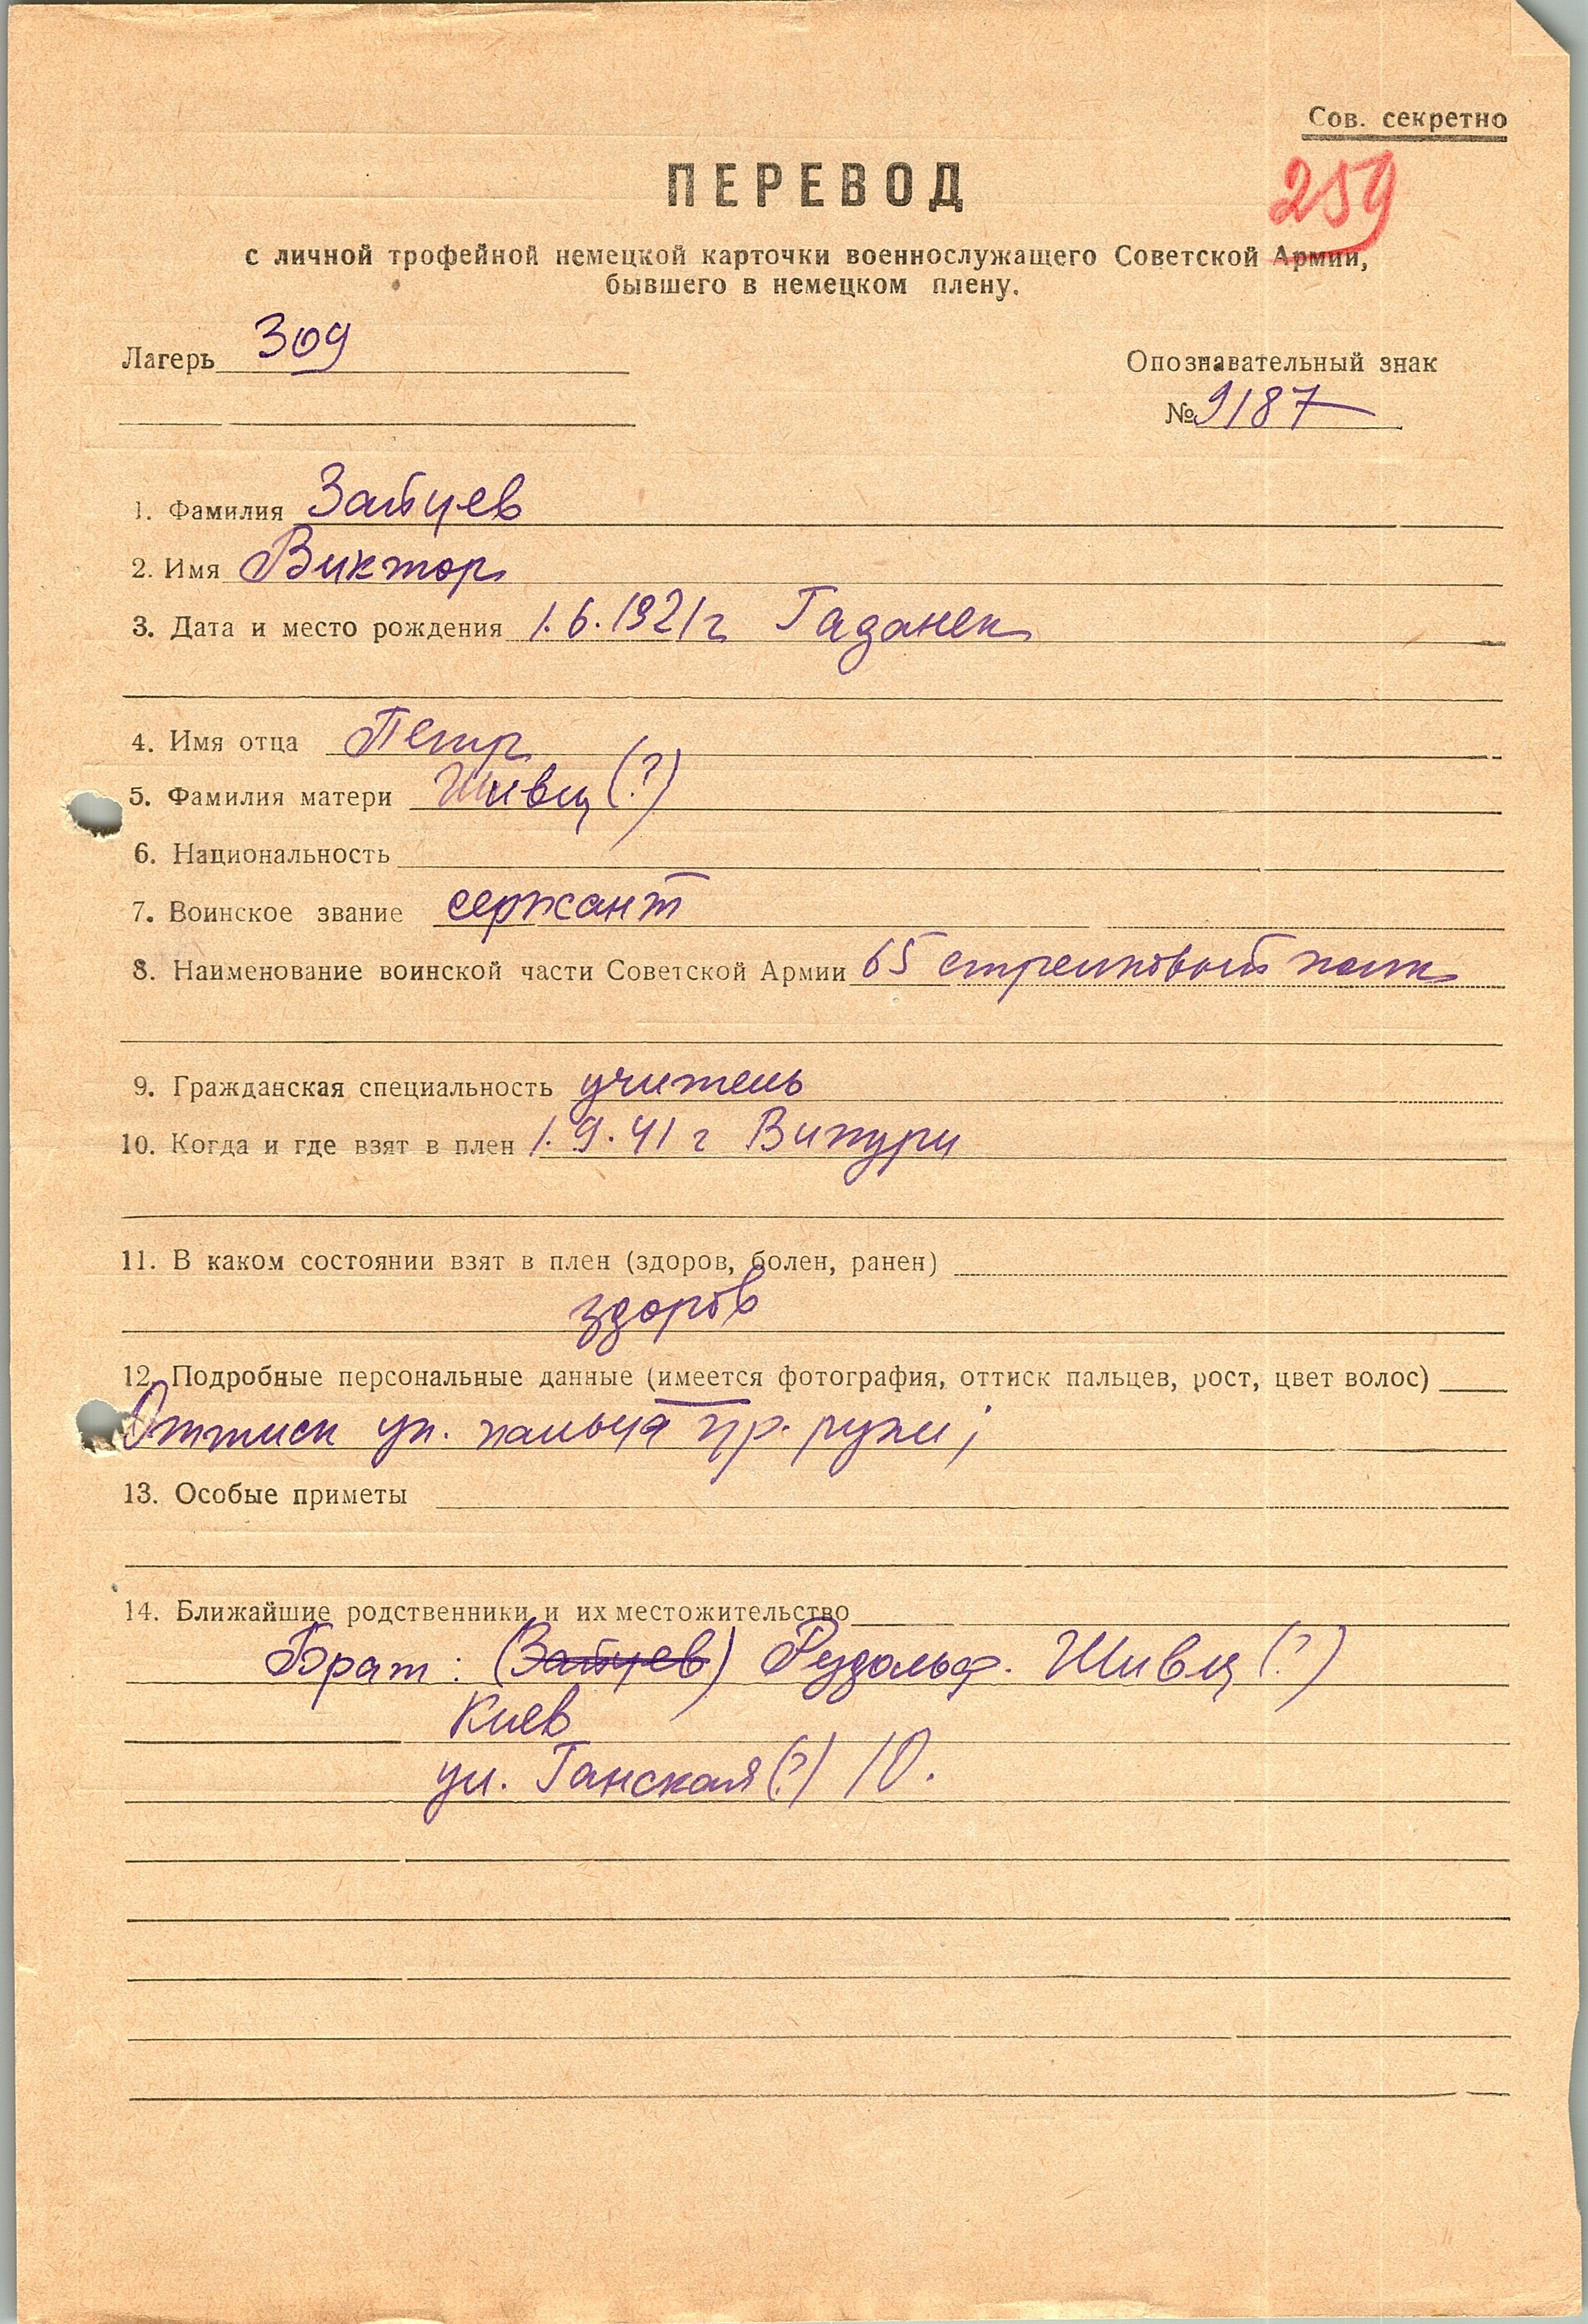 Сов. секретно
ПЕРЕВОД
259
с личной трофейной немецкой карточки военнослужащего Советской Армии,
бывшего в немецком плену.
Лагерь 309
Опознавательный знак
№ 9187
1. Фамилия Зайцев
2. Имя Виктор
3. Дата и место рождения 1.6.1921г Гаданек
4. Имя отца Петр
5. Фамилия матери Шивец (?)
6. Национальность
7. Воинское звание сержант
8. Наименование воинской части Советской Армии 65 стрелковый полк
9. Гражданская специальность учитель
10. Когда и где взят в плен 1.9.41 г Випури
11. В каком состоянии взят в плен (здоров, болен, ранен)
здоров
12. Подробные персональные данные (имеется фотография, оттиск пальцев, рост, цвет волос)
Оттиск ук. пальца пр. руки;
13. Особые приметы
14. Ближайшие родственники и их местожительство
Брат: (Зайцев) Рудольф. Шивец (?)
Киев
ул. Ганская (?) 10.